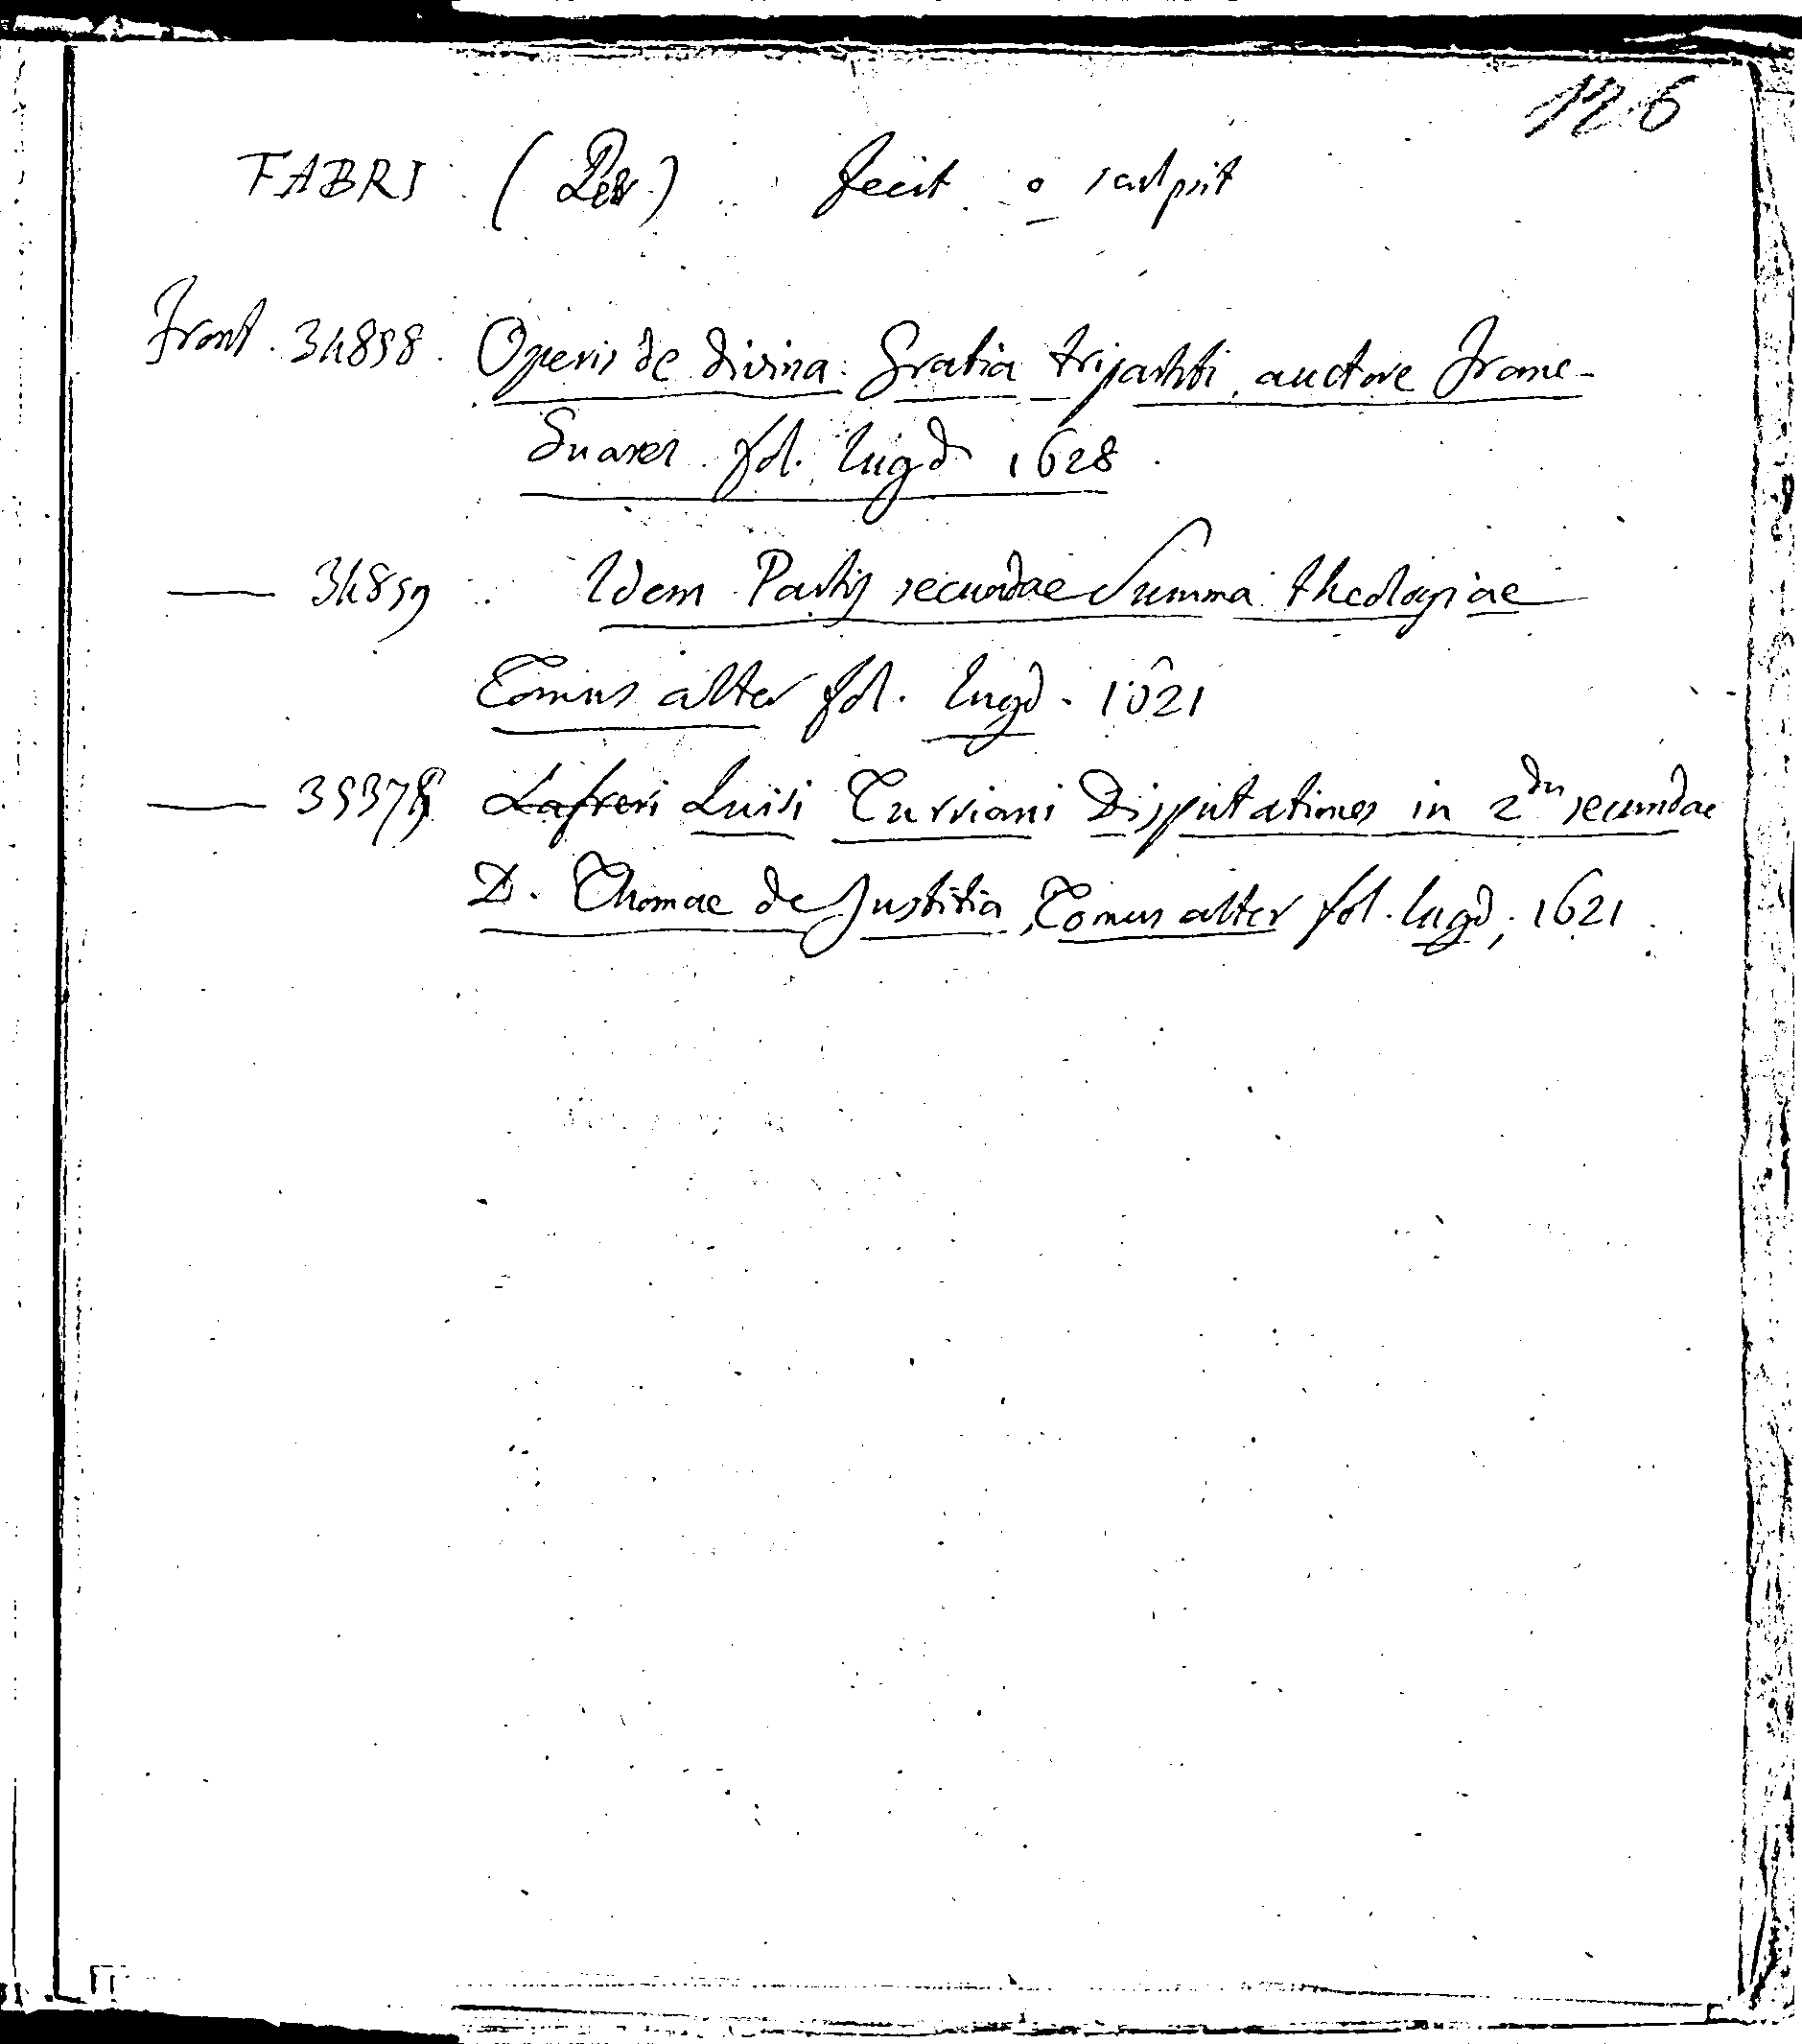 126
FABRI (Petr.) fecit o sculpsit
Front. 34858. Operis de divina Gratia tripartiti, auctore Franc-
Suarez fol. lugd 1628.
— 34859 Idem Partis secundae Summa theologiae
Tomus alter fol. lugd. 1621
— Lafreri Luisi Turriani Disputationes in 2dn secundae
D. Thomae de Justitia, Tomus alter fol. lugd, 1621